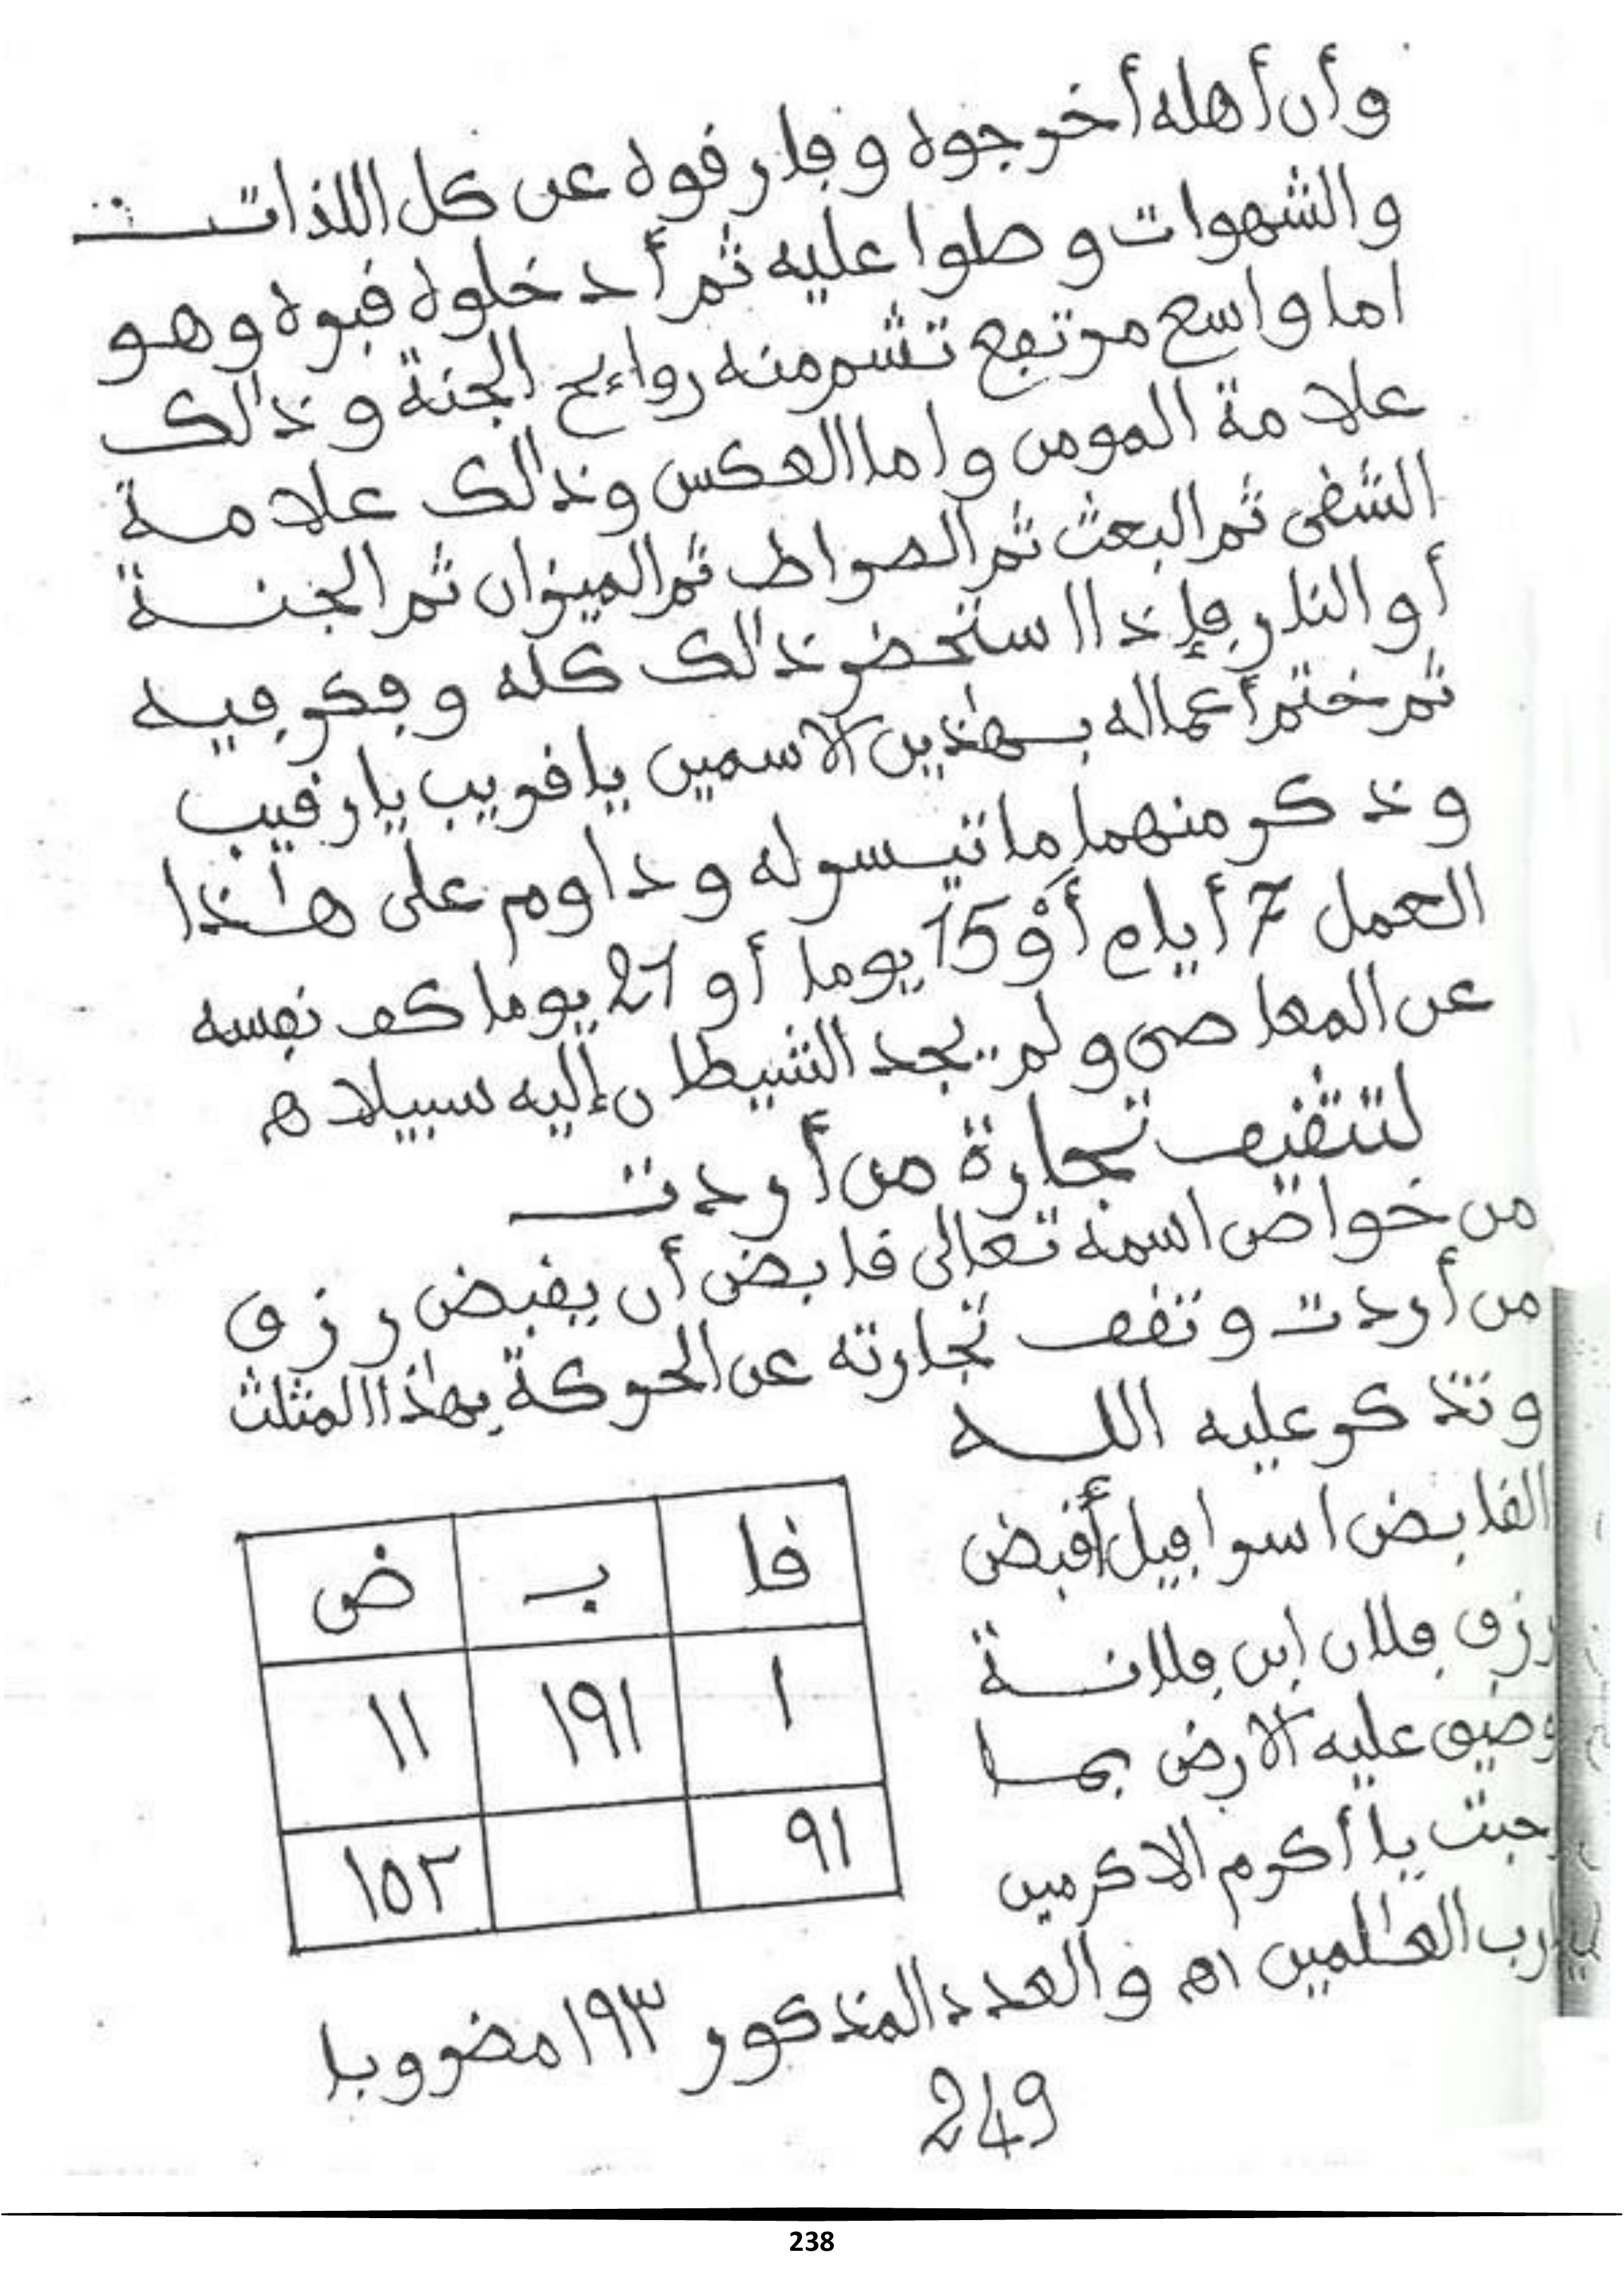 وأن أهله أخرجوه وفارقوه عن كل اللذات
والشهوات وصلوا عليه ثم أدخلوه قبره وهو
اما واسع مرتفع تشم منه روائح الجنة وذالك
علامة المومن واما العكس وذالك علامة
الشقى ثم البعث ثم الصراط ثم الميزان ثم الجنة
أو النار فإذا استحضر ذالك كله وفكر فيه
ثم ختم أعماله بهذين الاسمين يا قريب يا رقيب
وذكر منهما ما تيسر له وداوم على هٰذا
العمل 7 أيام أو 15 يوما أو 21 يوما كف نفسه
عن المعاصى ولم يجد الشيطان إليه سبيلا ه
لتثقيف تجارة من أردت
من خواص اسمه تعالى قابض أن يقبض رزق
من أردت وتقف تجارته عن الحركة بهٰذا المثلث
وتذكر عليه الله
القابض اسرافيل أقبض
رزق فلان ابن فلانة
وضيق عليه الارض بما
رحبت يا أكرم الاكرمين
يارب العٰلمين اه والعدد المذكور ١٩٣ مضروبا
قا بـ ض
١ ١٩١ ١١
٩١ ١٥٢
249
238